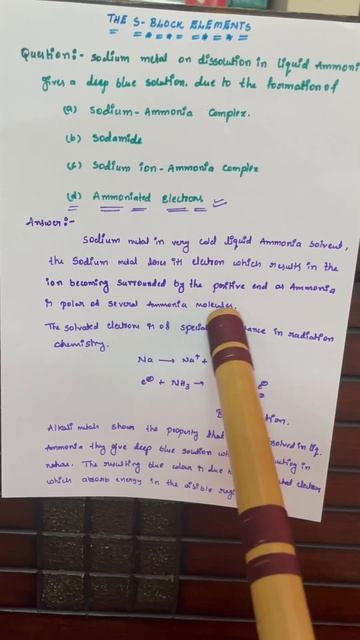 THE S-BLOCK ELEMENTS
Question:- Sodium metal on dissolution in liquid Ammoni
gives a deep blue solution. due to the formation of
(a) Sodium-Ammonia Complex.
(b) Sodamide
(c) Sodium ion-Ammonia Complex
(d) Ammoniated electrons
Answer:-
Sodium metal in very cold liquid Ammonia solvent,
the Sodium metal loses its electron which results in the
ion becoming surrounded by the positive end as Ammonia
is polar of several Ammonia molecules.
The solvated electrons is of special ance in radiation
chemistry.
Na → Na⁺ +
e⊖ + NH₃ →
tion.
Alkali metals shows the property that solved in liq.
Ammonia they give deep blue solution wh ucting in
nature. The resulting blue colour is due electrons
which absorb energy in the visible reg